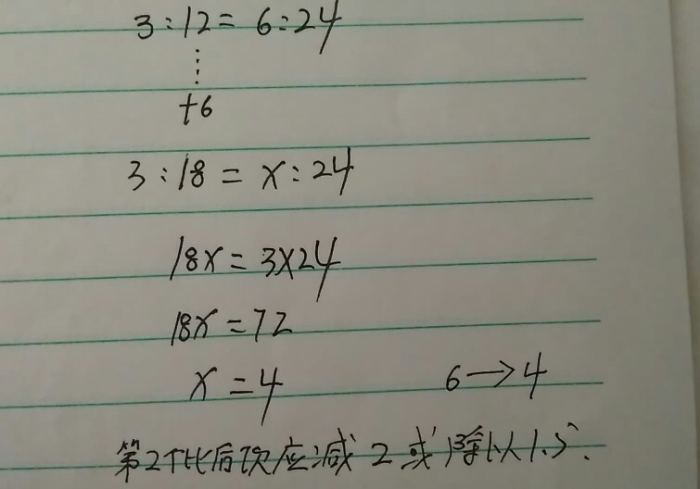 3:12=6:24
⋮
+6
3:18=x:24
18x=3×24
18x=72
x=4 6→4
第2个比后项应减2或除以1.5.